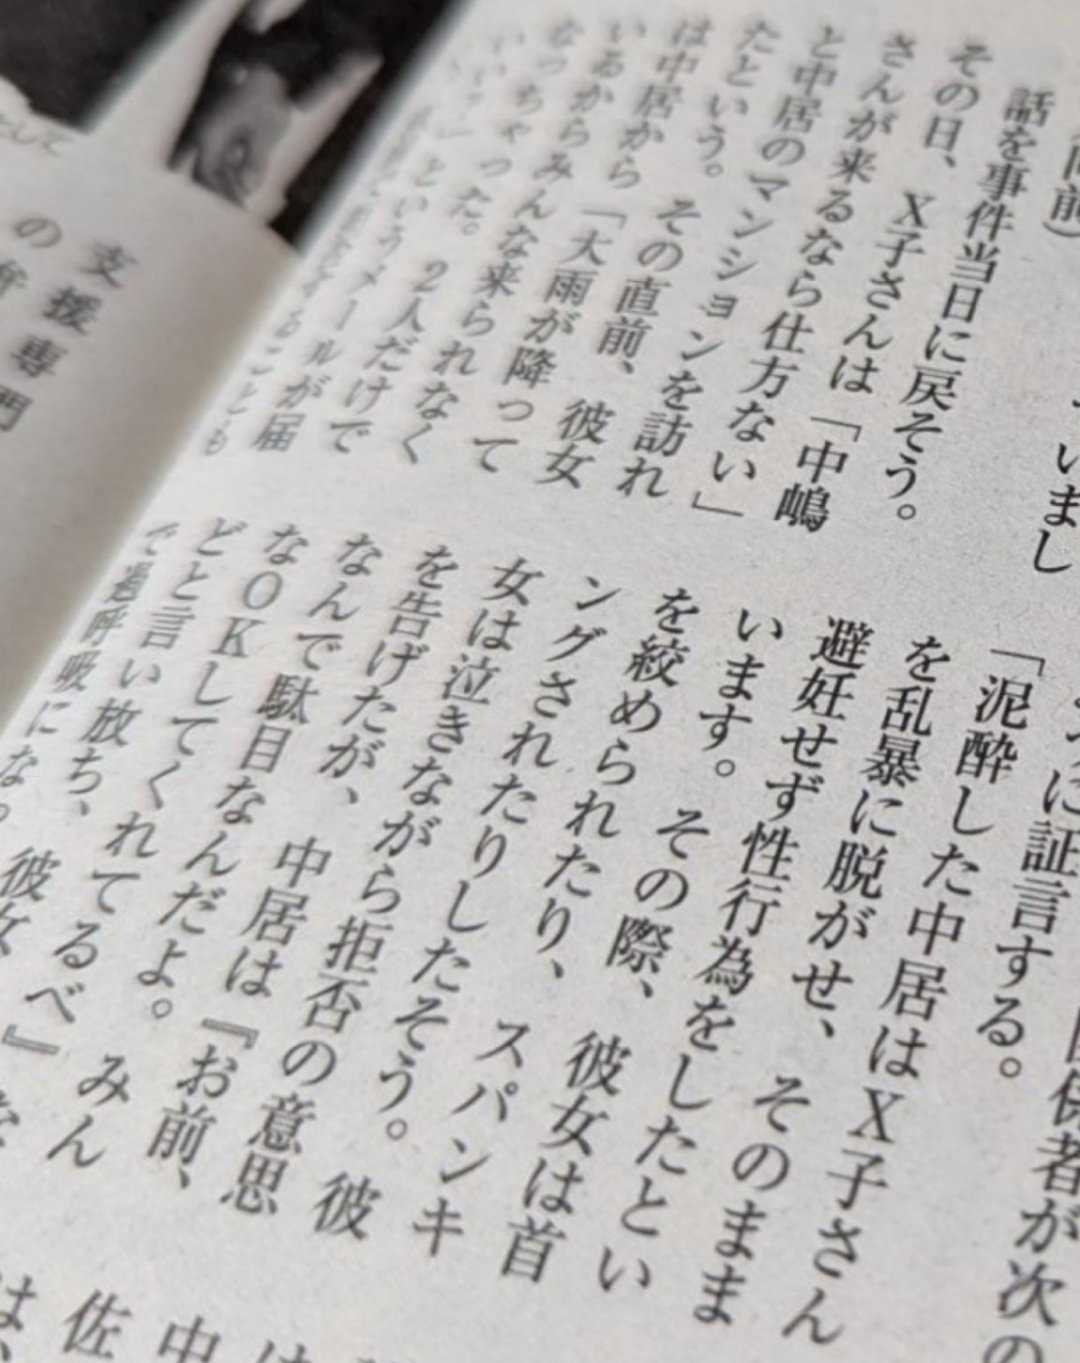 いまし
同前）
話を事件当日に戻そう。
その日、X子さんは「中嶋
さんが来るなら仕方ない」
と中居のマンションを訪れ
たという。その直前、彼女
は中居から「大雨が降って
いるからみんな来られなく
なっちゃった。2人だけで
いい？」というメールが届
することも
係者が次の
うに証言する。
「泥酔した中居はX子さん
を乱暴に脱がせ、そのまま
避妊せず性行為をしたとい
います。その際、彼女は首
を絞められたり、スパンキ
ングされたりしたそう。彼
女は泣きながら拒否の意思
を告げたが、中居は『お前、
なんで駄目なんだよ。みん
なOKしてくれてるべ』な
どと言い放ち、彼女
で過呼吸にな
中
佐
は、
として
支援専門
の弁